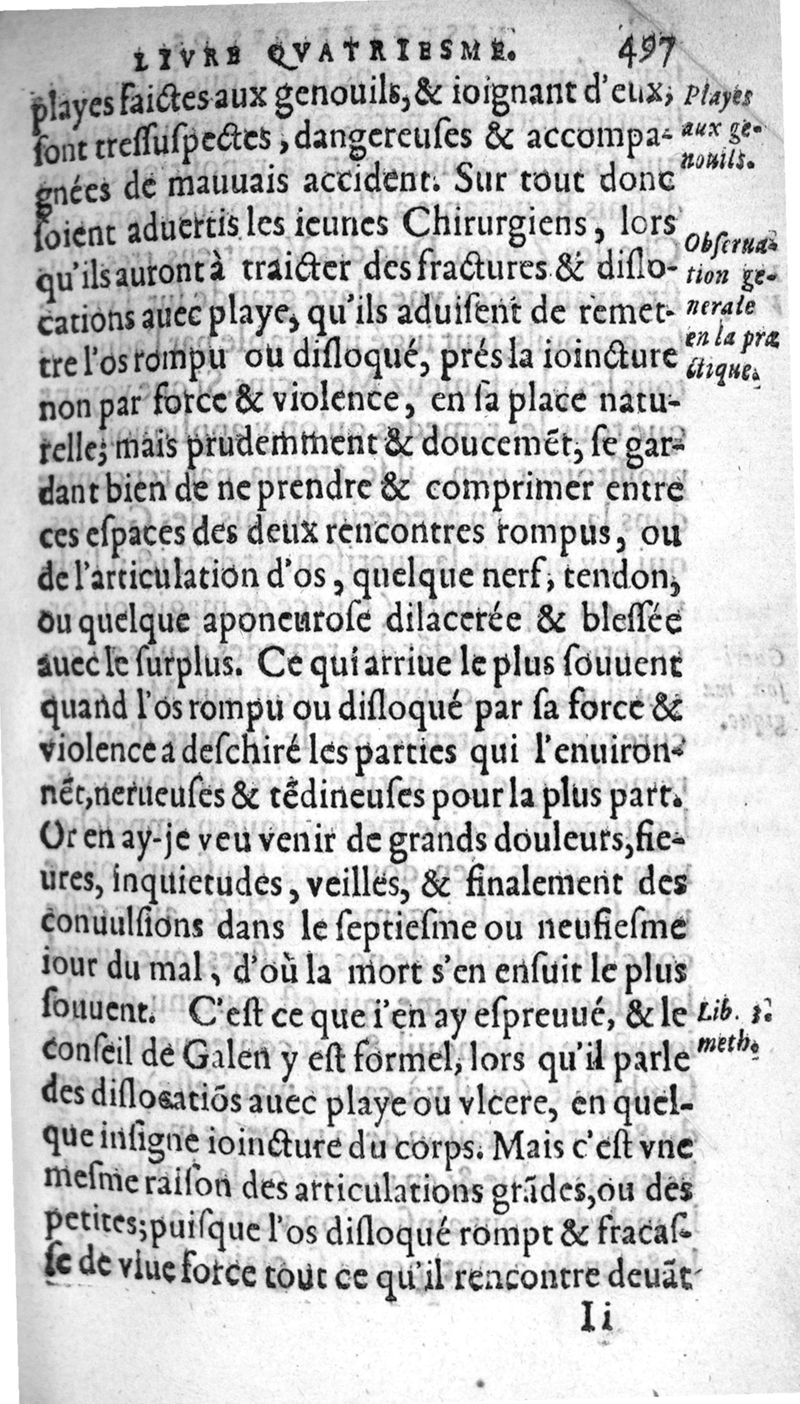 LIVRE QVATRIESME. 497
playes faictes aux genouils, & ioignant d'eux,
ſont treſſuſpectes, dangereuſes & accompa-
gnées de mauuais accident. Sur tout donc
ſoient aduertis les ieunes Chirurgiens, lors
qu'ils auront à traicter des fractures & diſlo-
cations auec playe, qu'ils aduiſent de remet-
tre l'os rompu ou diſloqué, prés la ioincture
non par force & violence, en ſa place natu-
relle; mais prudemment & doucemẽt, ſe gar-
dant bien de ne prendre & comprimer entre
ces eſpaces des deux rencontres rompus, ou
de l'articulation d'os, quelque nerf, tendon,
ou quelque aponeuroſe dilacerée & bleſſée
auec le ſurplus. Ce qui arriue le plus ſouuent
quand l'os rompu ou diſloqué par ſa force &
violence a deſchiré les parties qui l'enuiron-
nẽt, nerueuſes & tẽdineuſes pour la plus part.
Or en ay-je veu venir de grands douleurs, fie-
ures, inquietudes, veilles, & finalement des
conuulſions dans le ſeptieſme ou neufieſme
iour du mal, d'où la mort s'en enſuit le plus
ſouuent. C'eſt ce que i'en ay eſpreuué, & le
conſeil de Galen y eſt formel, lors qu'il parle
des diſlocatiõs auec playe ou vlcere, en quel-
que inſigne ioincture du corps. Mais c'eſt vne
meſme raiſon des articulations grãdes, ou des
petites; puiſque l'os diſloqué rompt & fracaſ-
ſe de viue force tout ce qu'il rencontre deuãt
Ii
Playes
aux ge-
nouils.
Obſerua-
tion ge-
nerale
en la pra
ctique.
Lib.
meth.